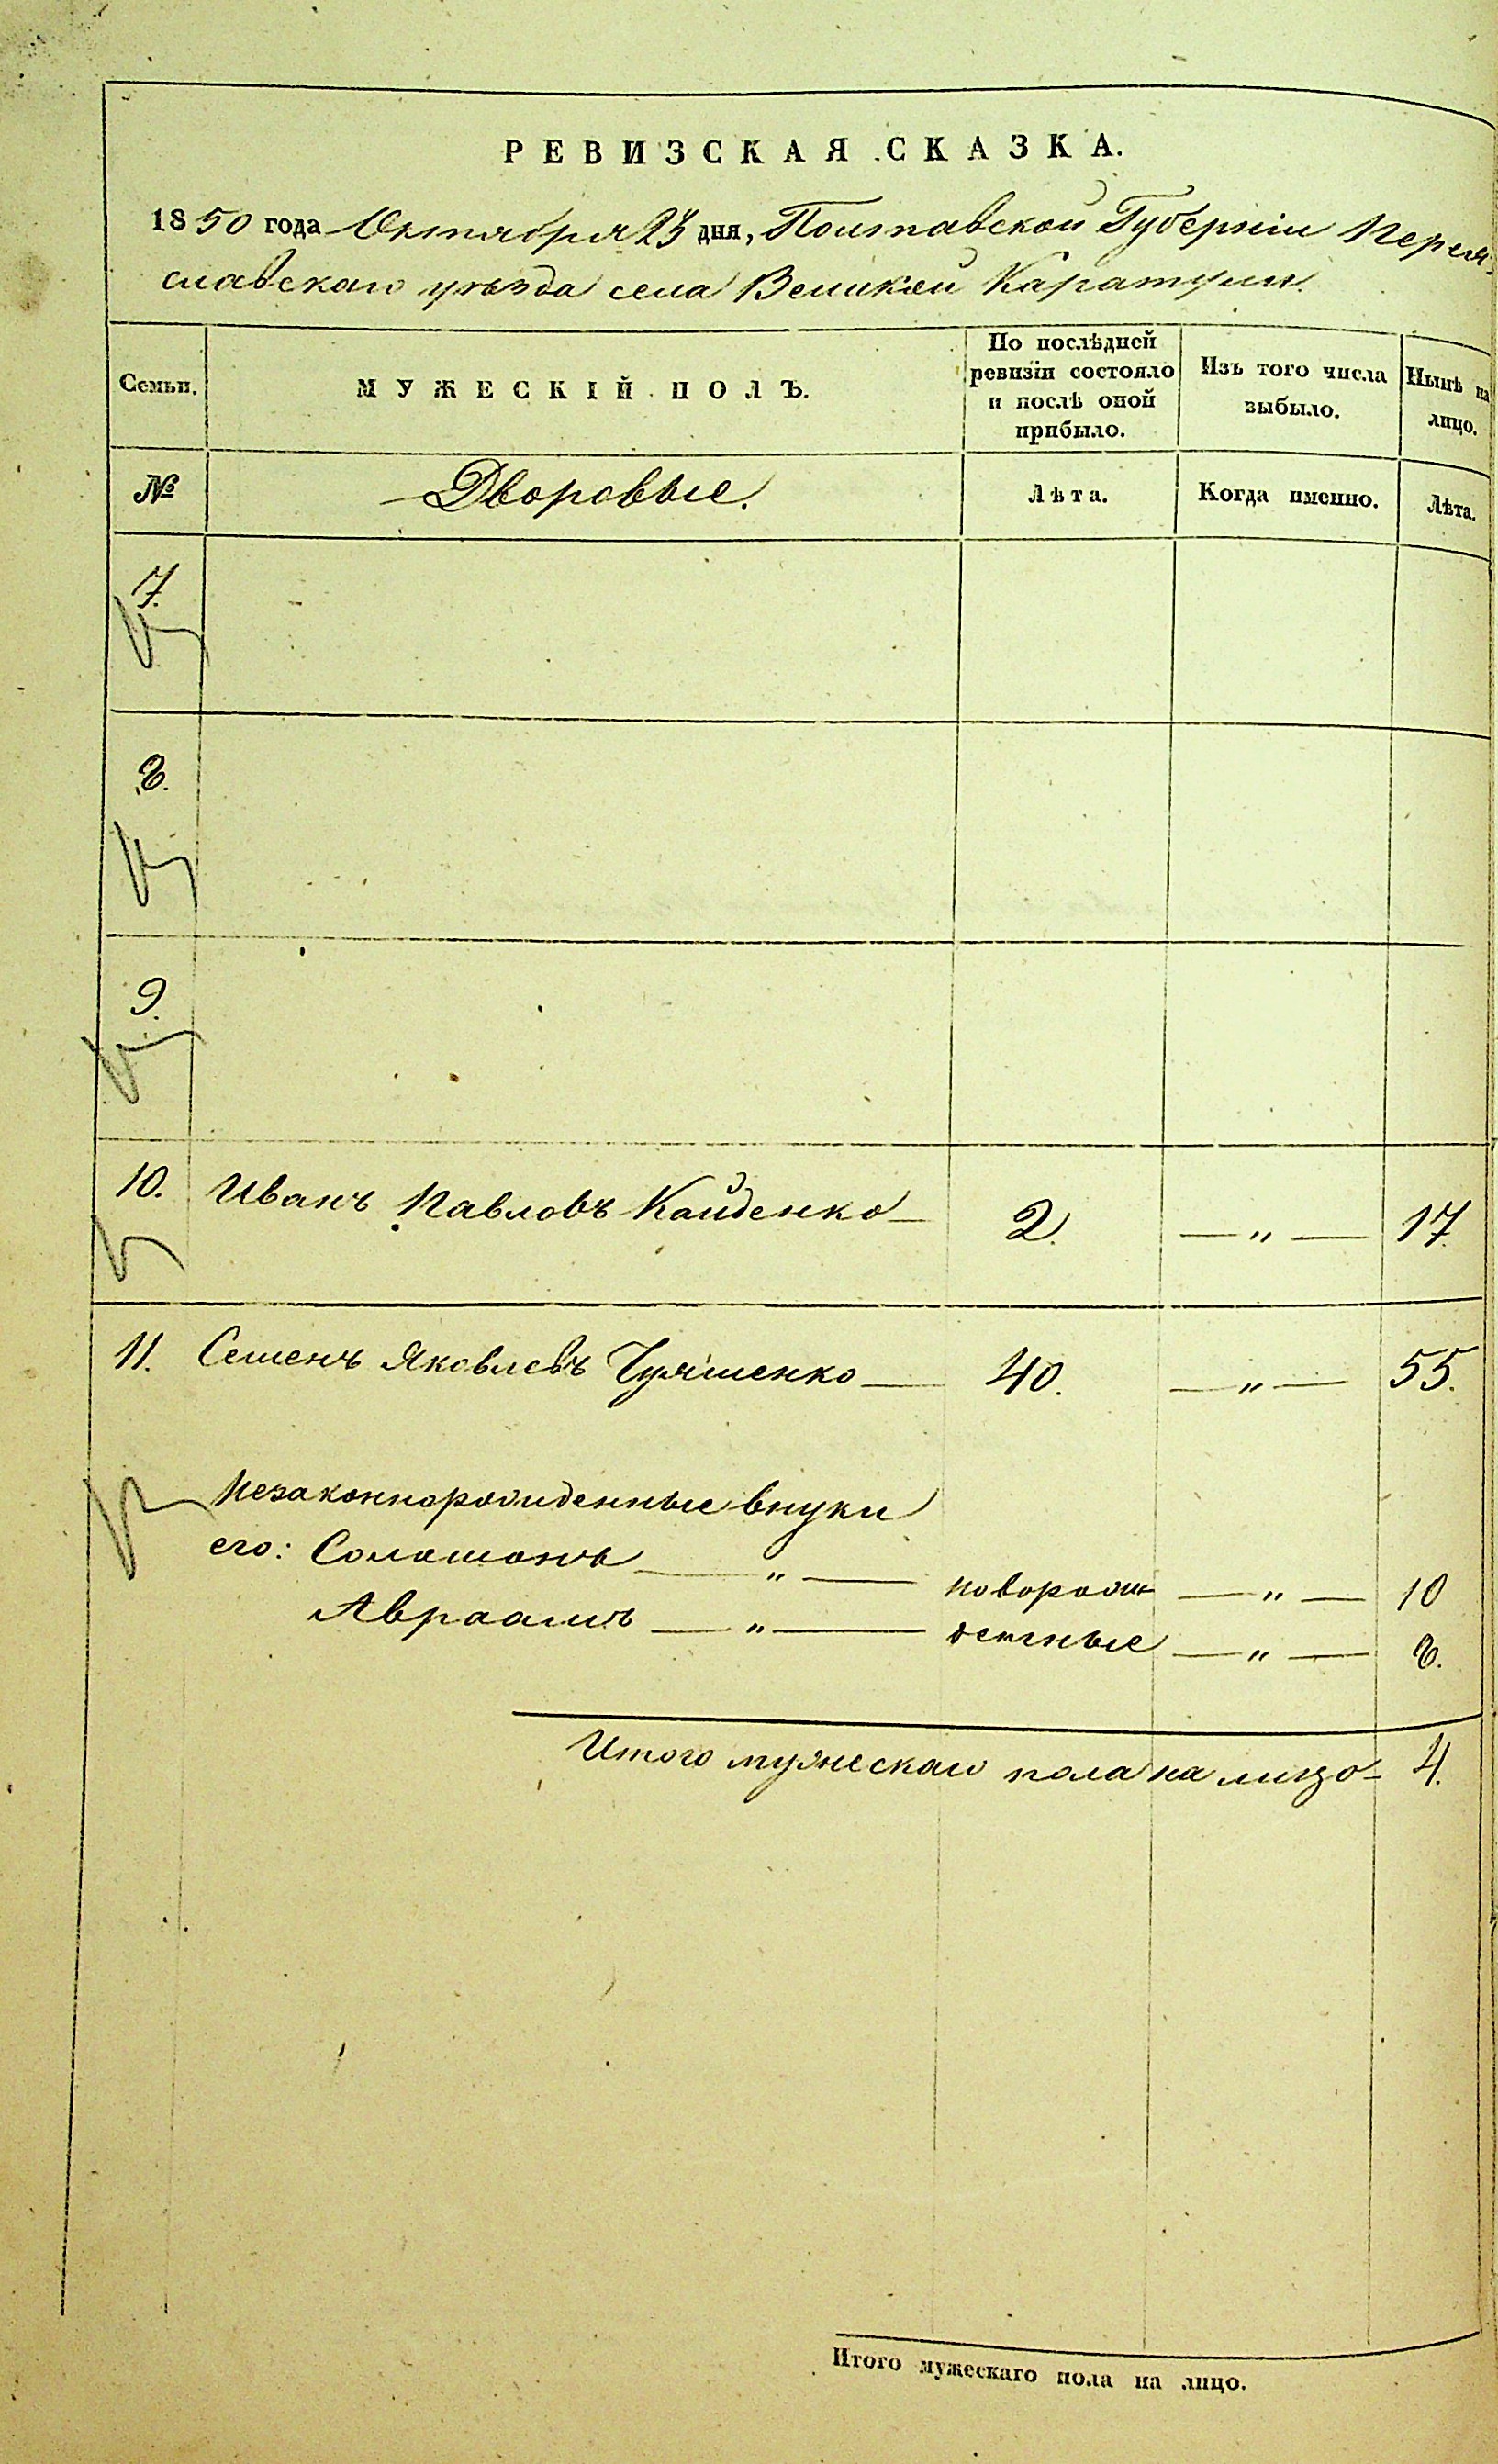 РЕВИЗСКАЯ СКАЗКА.
1850 года Октября 23 дня, Полтавской Губерніи Перея-
славскаго уѣзда села Великой Каратули.
Семьи.
МУЖЕСКІЙ ПОЛЪ.
По послѣдней
ревизіи состояло
и послѣ оной
прибыло.
Изъ того числа
выбыло.
Нынѣ на
лицо.
№
Дворовые.
Лѣта.
Когда именно.
Лѣта.
7.
8.
9.
10. Иванъ Павловъ Кайденко — 2. — " — 17.
11. Семенъ Яковлевъ — 40. — " — 55.
Незаконнорожденные внуки
его: Соломонъ — " — новорож- — " — 10
Авраамъ — " — денные — " — 8.
Итого мужескаго пола на лицо — 4.
Итого мужескаго пола на лицо.